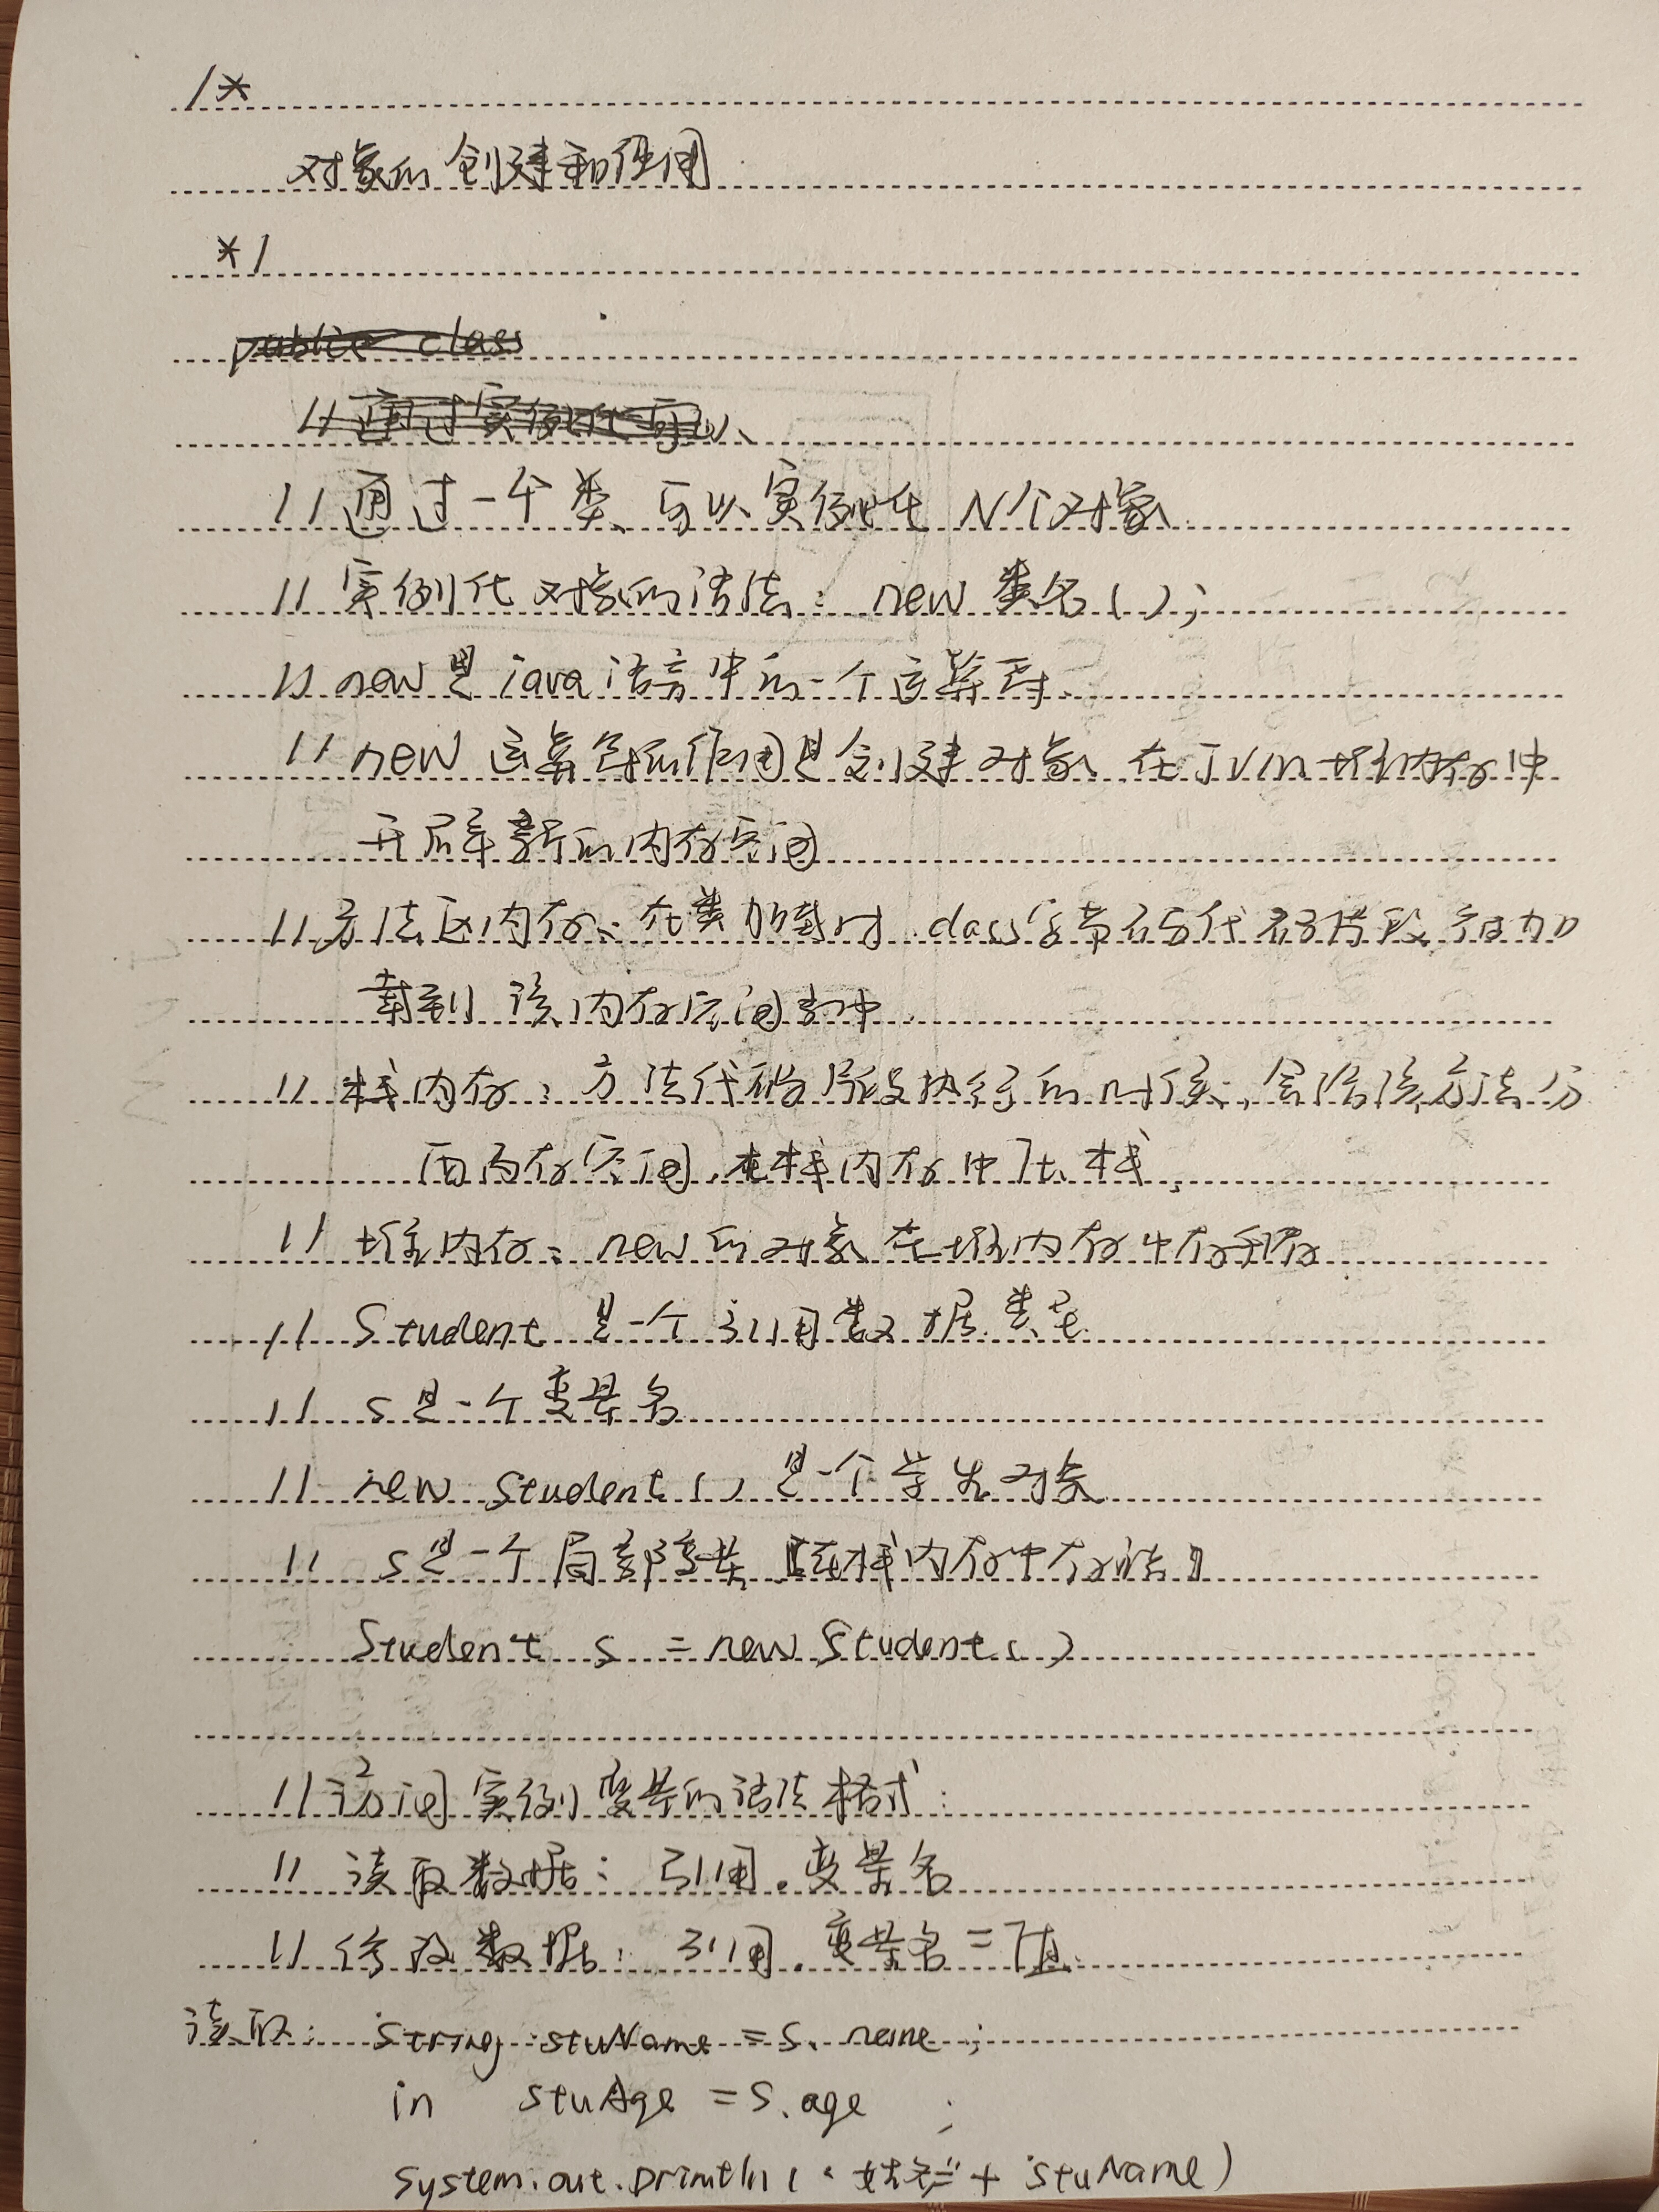 /*
对象的创建和使用
*/
public class
// 通过实例化可以
// 通过一个类可以实例化 N个对象
// 实例化对象的语法: new 类名();
// new是java语言中的一个运算符
// new 运算符的作用是创建对象 在JVM堆内存中
开辟新的内存空间
// 方法区内存: 在类加载时 class字节码代码片段被加
载到该内存空间当中
// 栈内存: 方法代码片段执行的时候, 会给该方法分
配内存空间, 在栈内存中压栈
// 堆内存: new的对象在堆内存中存储
// Student 是一个引用数据类型
// s是一个变量名
// new Student() 是一个学生对象
// s是一个局部变量【在栈内存中存储】
Student s = new Student()
// 访问实例变量的语法格式:
// 读取数据: 引用.变量名
// 修改数据: 引用.变量名=值
读取: String stuName = s.name;
in stuAge = s.age ;
System.out.println("姓名=" + stuName)